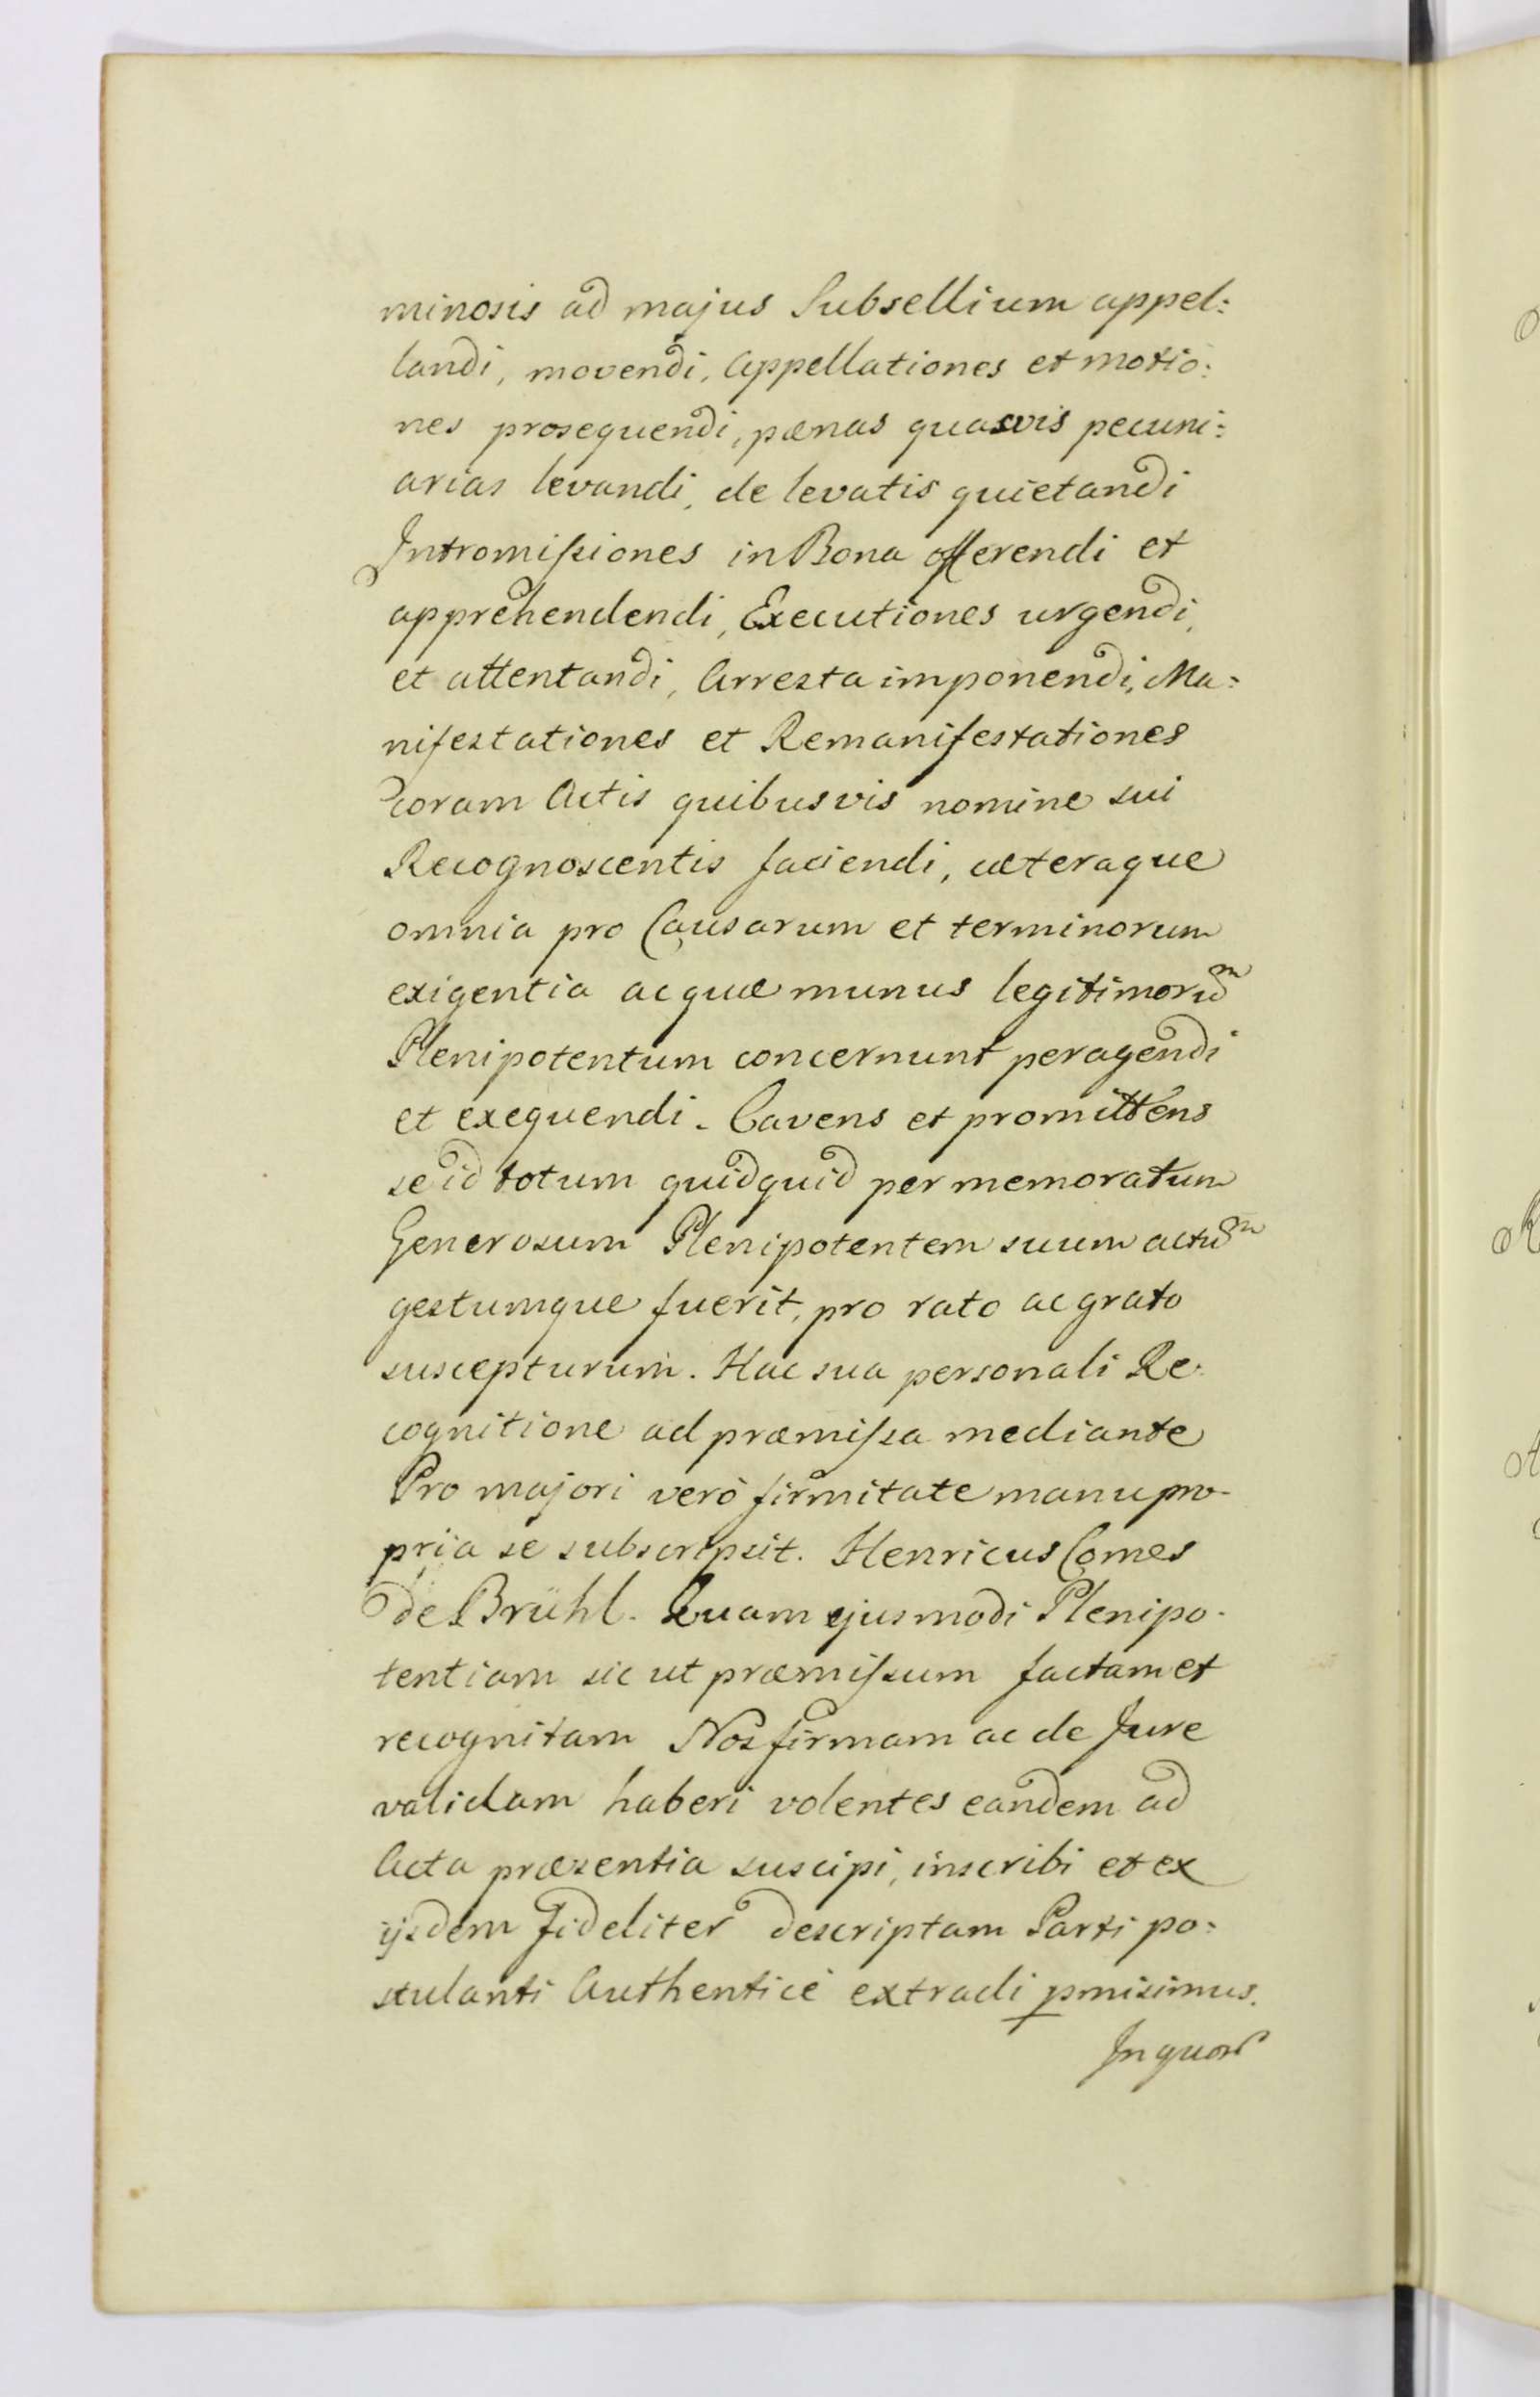 minosis ad majus Subsellium appel:
landi, movendi, Appellationes et motio:
nes prosequendi, pænas quasvis pecuni:
arias levandi, de levatis quietandi
Intromissiones in Bona offerendi et
apprehendendi, Executiones urgendi,
et attentandi, Arresta imponendi, Ma:
nifestationes et Remanifestationes
coram Actis quibusvis nomine sui
Recognoscentis faciendi, cæteraque
omnia pro Causarum et terminorum
exigentia ac quæ munus legitimorum
Plenipotentum concernunt peragendi
et exequendi. Cavens et promittens
se id totum quidquid per memoratum
Generosum Plenipotentem suum actum
gestumque fuerit, pro rato ac grato
suscepturum. Hac sua personali Re:
cognitione ad præmissa mediante
Pro majori verò firmitate manu pro-
pria se subscripsit. Henricus Comes
de Brühl. Quam ejusmodi Plenipo-
tentiam sic ut præmissum factam et
recognitam Nos firmam ac de Jure
validam haberi volentes eandem ad
Acta præsentia suscipi, inscribi et ex
ijsdem fideliter descriptam Parti po:
stulanti Authenticè extradi pmisimus.
In quor